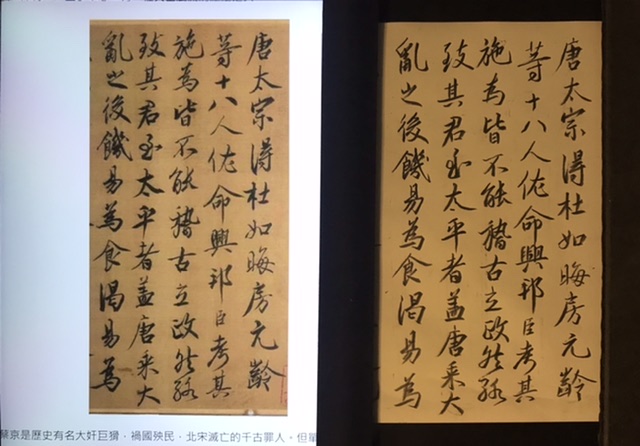 唐太宗得杜如晦房元齡
等十八人佐命興邦臣考其
施為皆不能稽古立政然
致其君至太平者蓋唐乘大
亂之後饑易為食渴易為
蔡京是歷史有名大奸巨猾，禍國殃民，北宋滅亡的千古罪人。但
唐太宗得杜如晦房元齡
等十八人佐命興邦臣考其
施為皆不能稽古立政然
致其君至太平者蓋唐乘大
亂之後饑易為食渴易為